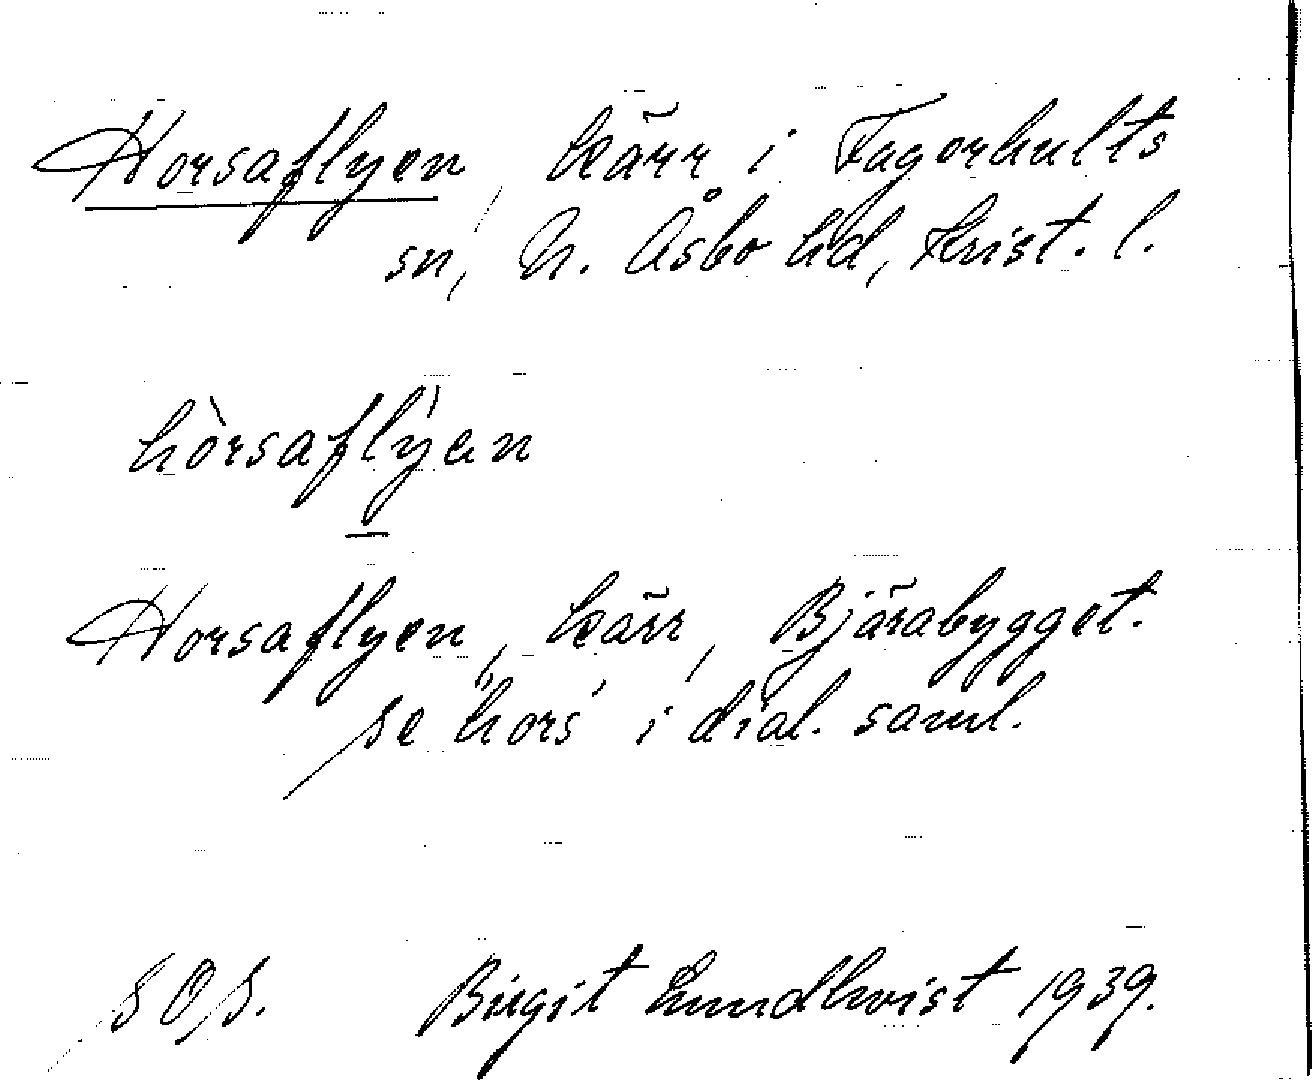 Horsaflyen, kärr i Fagerhults
sn, N. Åsbo hd, Krist. l.
hòrsaflýen
Horsaflyen, kärr, Bjärabygget.
se "hors" i dial. saml.
S O S. Birgit Lundkvist 1939.